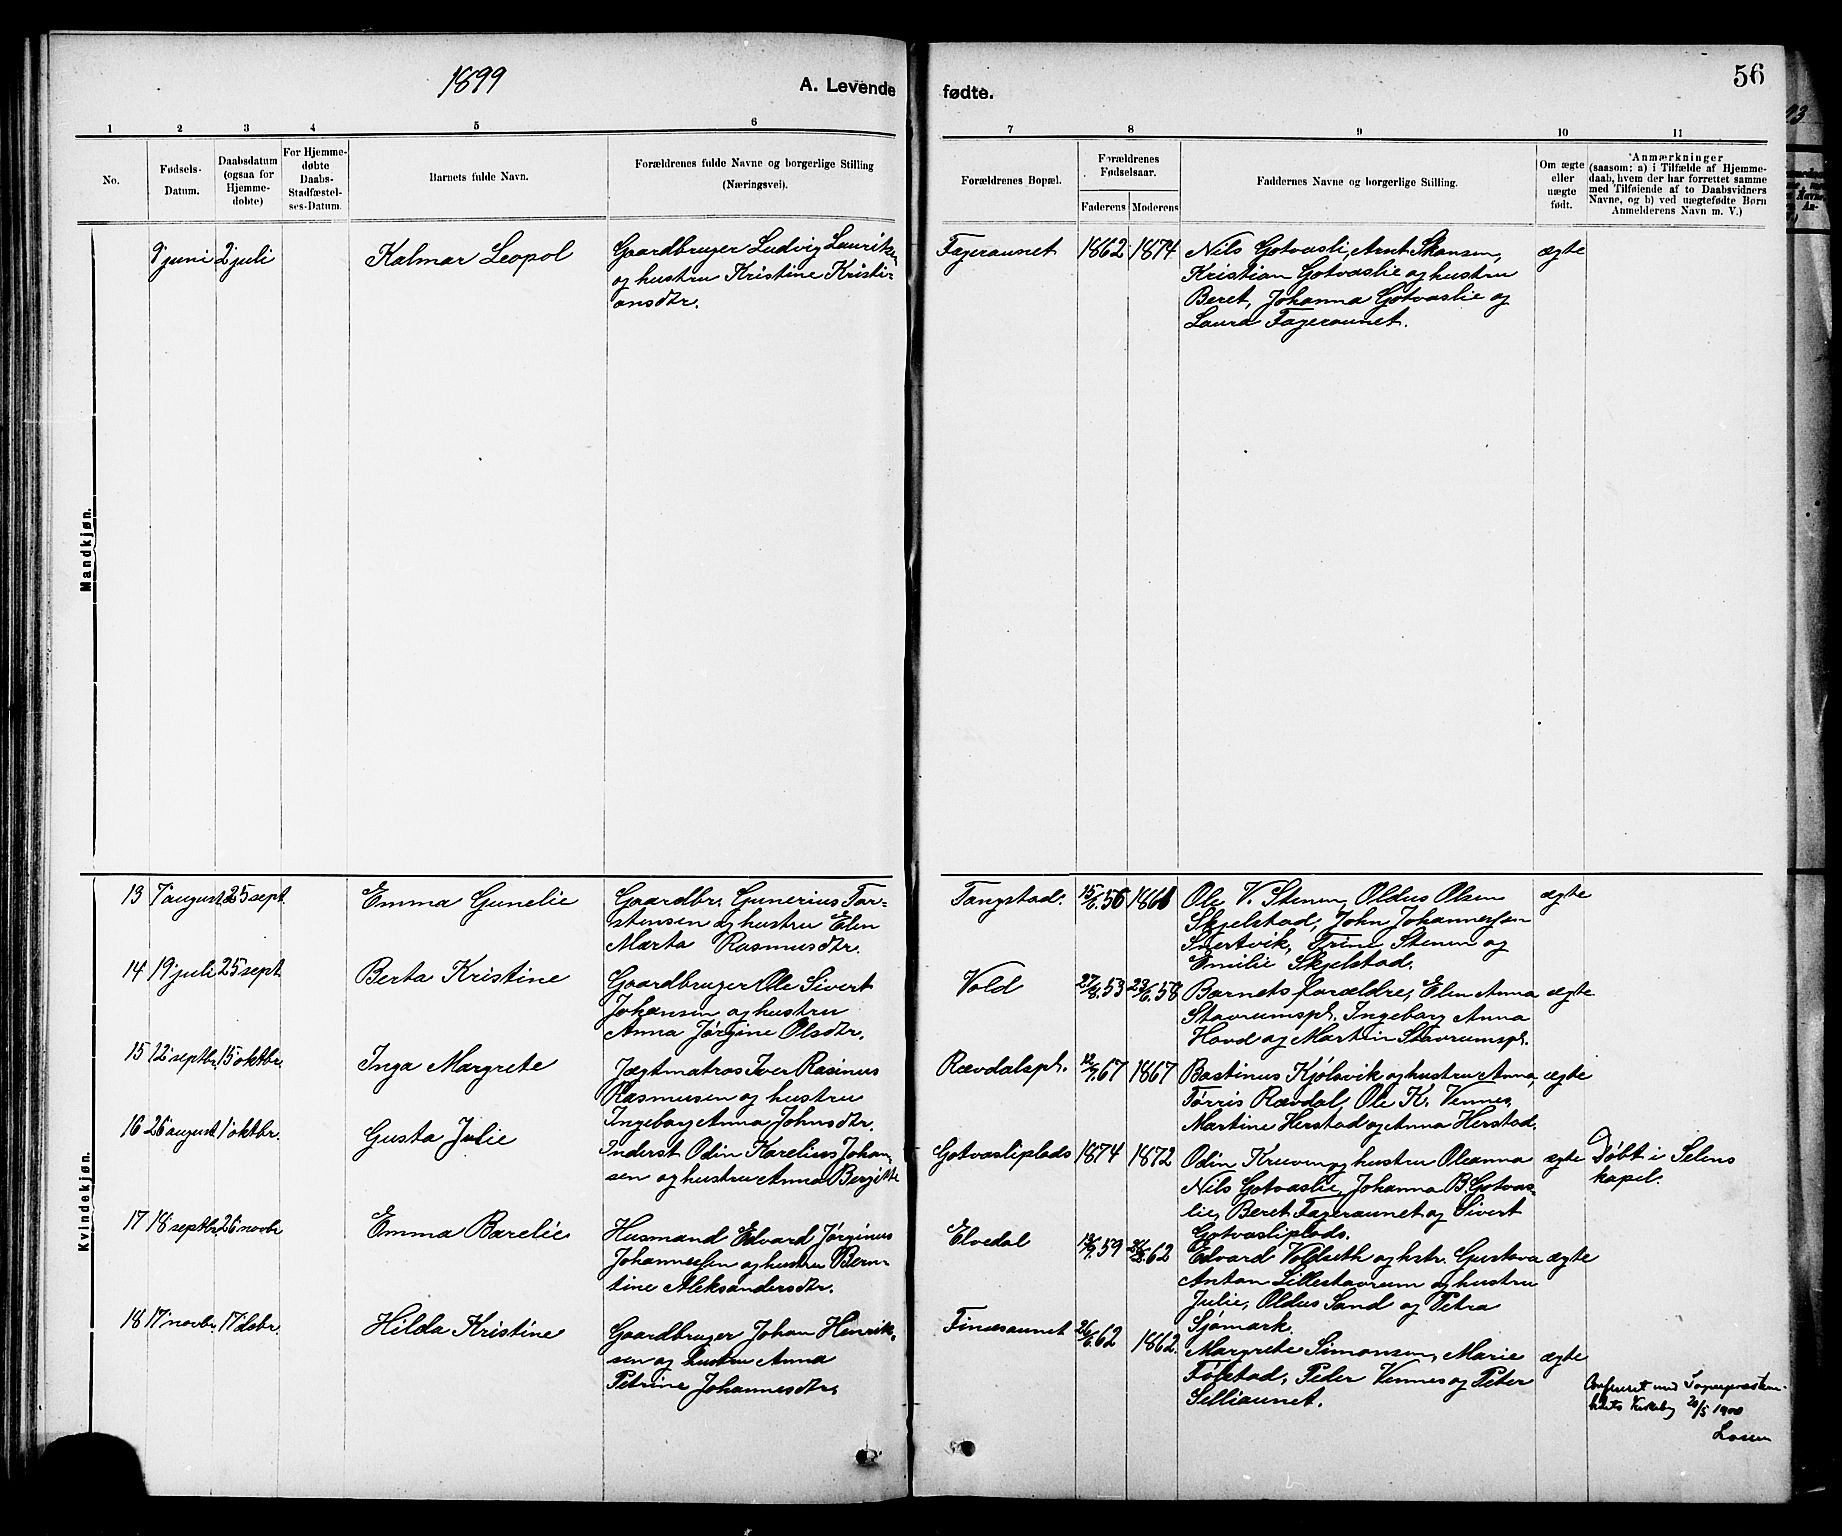 1899
A. Levende fødte.
56
1 2 3 4 5 6 7 8 9 10 11
No.
Fødsels-
Datum.
Daabsdatum
(ogsaa for
Hjemme-
døbte)
For Hjemme-
døbte
Daabs-
Stadfæstel-
ses-Datum.
Barnets fulde Navn.
Forældrenes fulde Navne og borgerlige Stilling
(Næringsvei).
Forældrenes Bopæl.
Forældrenes
Fødselsaar.
Faderens Moderens
Faddernes Navne og borgerlige Stilling.
Om ægte
eller
uægte
født.
Anmærkninger
(saasom: a) i Tilfælde af Hjemme-
daab, hvem der har forrettet samme
med Tilføiende af to Daabsvidners
Navne, og b) ved uægtefødte Børn
Anmelderens Navn m. V.)
Mandkjøn.
9 juni 2 juli
Kalmar Leopol
Gaardbruger Ludvig Lauritsen
og hustru Kristine Kristi-
ansdtr.
Fageraunet
1862 1874
Nils Gotvasli, Arnt Skansen,
Kristian Gotvaslie og hustru
Beret, Johanna Gotvaslie og
Laura Fageraunet.
ægte
Kvindekjøn.
13 7 august 25 sept.
Emma Gunelie
Gaardbr. Gunerius Tor-
stensen og hustru Elen
Marta Rasmusdtr.
Tangstad.
15/6.56 1861
Ole V. Stenen, Oldus Olsen
Skjelstad, John Johannessen
Snertvik, Trine Stenen og
Emilie Skjelstad.
ægte
14 19 juli 25 sept.
Berta Kristine
Gaardbruger Ole Sivert
Johansen og hustru
Anna Jørgine Olsdtr.
Vold
27/8.53 23/6.58
Barnets forældre, Elen Anna
Stavrumspl. Ingeborg Anna
Hovd og Martin Stavrumspl.
ægte
15 12 septbr. 15 oktbr.
Inga Margrete
Jægtmatros Iver Rasinus
Rasmusen og hustru
Ingeborg Anna Johnsdtr.
Rævdalspl.
12/7.67 1867
Bastinus Kjølsvik og hustru Anna,
Tørris Rævdal, Ole K. Vennes,
Martine Herstad og Anna Herstad.
ægte
16 26 august 1 oktbr.
Gusta Julie
Inderst Odin Karelius Johan-
sen og hustru Anna Bergitte
Gotvasliplads
1874 1872
Odin Kruven og hustru Oleanna
Nils Gotvaslie, Johanna B. Gotvas-
lie, Beret Fageraunet og Sivert
Gotvasliplads.
ægte
Døbt i Selens
kapel.
17 18 septbr. 26 novbr
Emma Barelie
Husmand Edvard Jørginus
Johannessen og hustru Bern-
tine Aleksandersdtr.
Elvedal
59 62
Edvard Voldseth og hstr. Gustava
Anton Lillestavrum og hustru
Julie, Oldus Sand og Petra
Sjømark.
ægte
18 17 novbr. 17 debr.
Hilda Kristine
Gaardbruger Johan Henrik-
sen og hustru Anna
Petrine Johannesdtr.
Finæsaunet
26/6.62 1862.
Margrete Simonsen, Marie
Følstad, Peder Vennes og Peter
Selliaunet.
ægte
Confereret med Sogneprestem-
bedets Kirkebog 20/5 1900